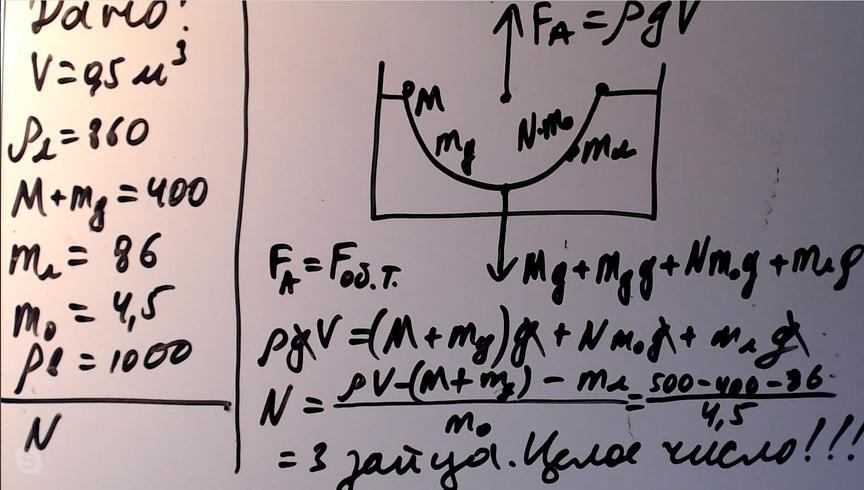 Дано:
V = 0,5 м³
ρл = 860
M + mд = 400
mл = 86
m₀ = 4,5
ρв = 1000
N
F_A = ρgV
M
mд
N·m₀
mл
F_A = Fоб.т.
Mg + mдg + Nm₀g + mлg
ρgV = (M + mд)g + Nm₀g + mлg
N = (ρV - (M + mд) - mл) / m₀ = (500 - 400 - 86) / 4,5
= 3 зайца. Целое число!!!